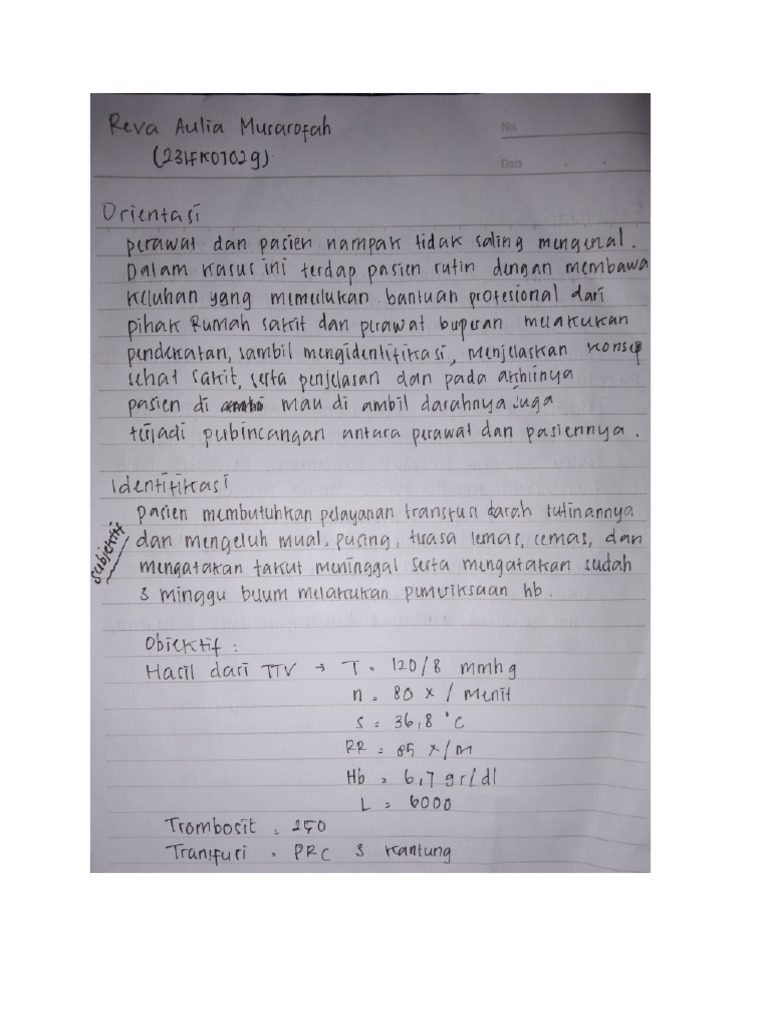 Reva Aulia Musarofah
(231FK01029)
No.
Data
Orientasi
perawat dan pasien nampak tidak saling mengenal.
Dalam kasus ini terdap pasien rutin dengan membawa
keluhan yang memerlukan bantuan profesional dari
pihak Rumah sakit dan perawat buperan melakukan
pendekatan, sambil mengidentifikasi, menjelaskan konsep
sehat sakit, serta penjelasan dan pada akhirnya
pasien di mau di ambil darahnya juga
terjadi perbincangan antara perawat dan pasiennya.
Identifikasi
subjektif
pasien membutuhkan pelayanan transfusi darah rutinannya
dan mengeluh mual, pusing, terasa lemas, cemas, dan
mengatakan takut meninggal serta mengatakan sudah
3 minggu belum melakukan pemeriksaan hb.
Objektif :
Hasil dari TTV → T = 120/8 mmhg
n = 80 x / menit
S = 36,8 °C
RR = 85 x/m
Hb = 6,7 gr/dl
L = 6000
Trombosit = 250
Tranfusi = PRC 3 kantung